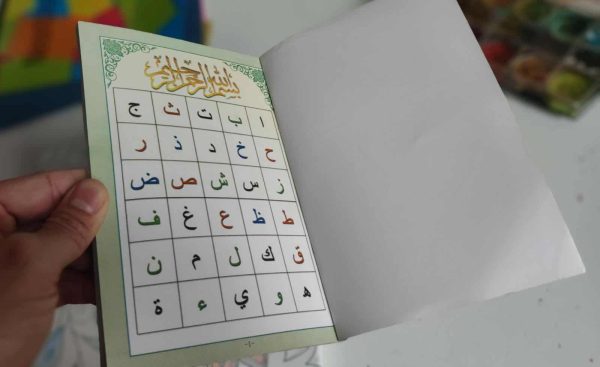 بسم الله الرحمن الرحيم
ا ب ت ث ج
ح خ د ذ ر
ز س ش ص ض
ط ظ ع غ ف
ق ك ل م ن
ه و ي ء ة
-١-